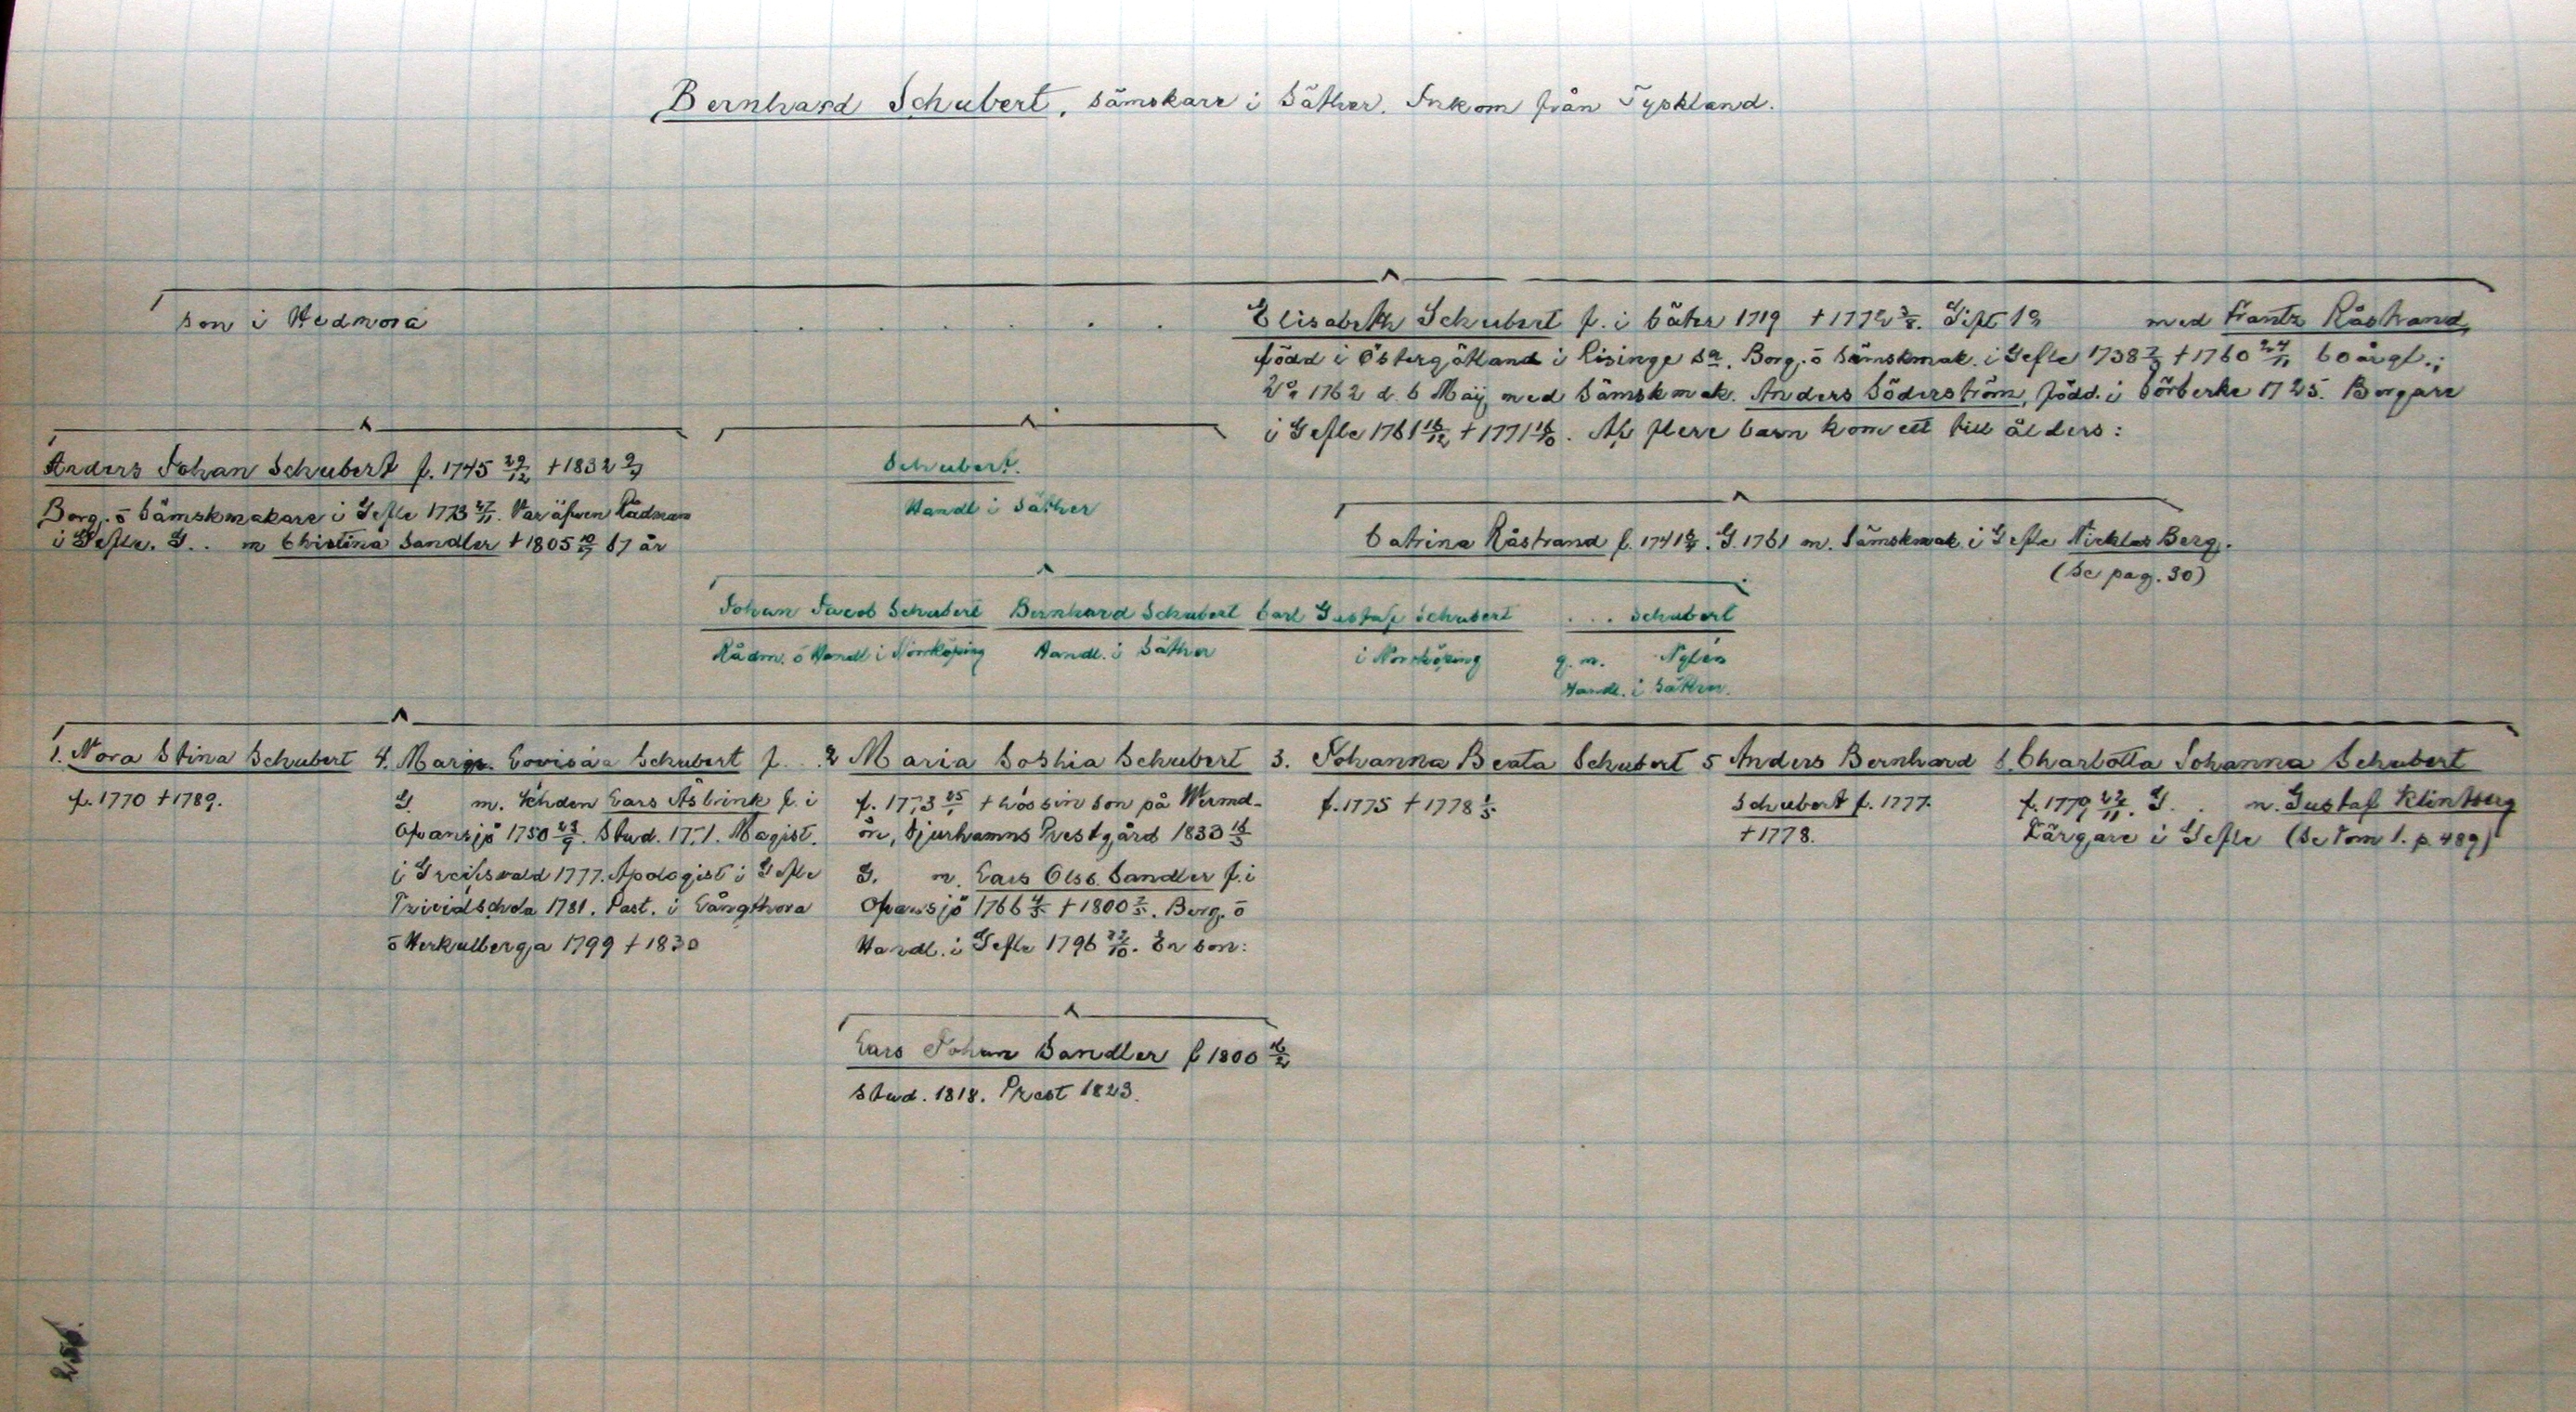 Bernhard Schubert, Sämskare i Säther. Inkom från Tyskland.
Son i Hedmora
Elisabeth Schubert f. i Säter 1719 † 1772 3/8. Gift 1º med Frantz Råstrand,
född i Östergötland i Risinge Sn. Borg. o Sämskmak. i Gefle 1738 † 1760 24/11 60 år gl.;
2º 1762 d. 6 Maij med Sämskmak. Anders Söderström, född i Sörberke 1725. Borgare
i Gefle 1761 16/12 † 1771 16/10. Af flere barn kom ett till ålders:
Anders Johan Schubert f. 1745 29/12 † 1832
Borg. o Sämskmakare i Gefle 1773 27/11. Var äfven Rådman
i Gefle. G.. m Christina Sandler † 1805 67 år
Schubert.
Handl i Säther
Catrina Råstrand f. 1741. G. 1761 m. Sämskmak. i Gefle Nicklas Berg.
(Se pag. 30)
Johan Jacob Schubert Bernhard Schubert Carl Gustaf Schubert ... Schubert
Rådm. o Handl i Norrköping Handl. i Säther i Norrköping g. m. Nylén
Handl. i Säther.
1. Nora Stina Schubert
f. 1770 † 1789.
4. Marg. Lovisa Schubert f. ..
G m. Khden Lars Åsbrink f. i
Ofansjö 1750 23/9. Stud. 1771. Magist.
i Greifswald 1777. Apologist i Gefle
Trivialschola 1781. Past. i Långthora
o Herkulberga 1799 † 1830
2 Maria Sophia Schubert
f. 1773 25/1 † hos sin son på Wermd-
ön, Djurhamns Prestgård 1833
G. m. Lars Olss. Sandler f. i
Ofansjö 1766 4/5 † 1800. Borg. o
Handl. i Gefle 1796 22/10. En son:
3. Johanna Beata Schubert
f. 1775 † 1778
5 Anders Bernhard
Schubert f. 1777.
† 1778.
6. Charlotta Johanna Schubert
f. 1779 22/11. G. . m. Gustaf Klintberg
Färgare i Gefle (Se Tom 1. p. 489)
Lars Johan Sandler f 1800
Stud. 1818. Prest 1823.